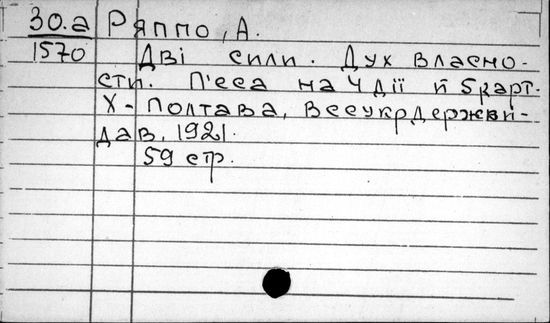 30.а Ряппо, А.
1570 Дві сили. Дух власно-
сти. П'еса на 4 дії й 5 карт.
Х-Полтава, Всеукрдержви-
дав, 1921.
59 стр.